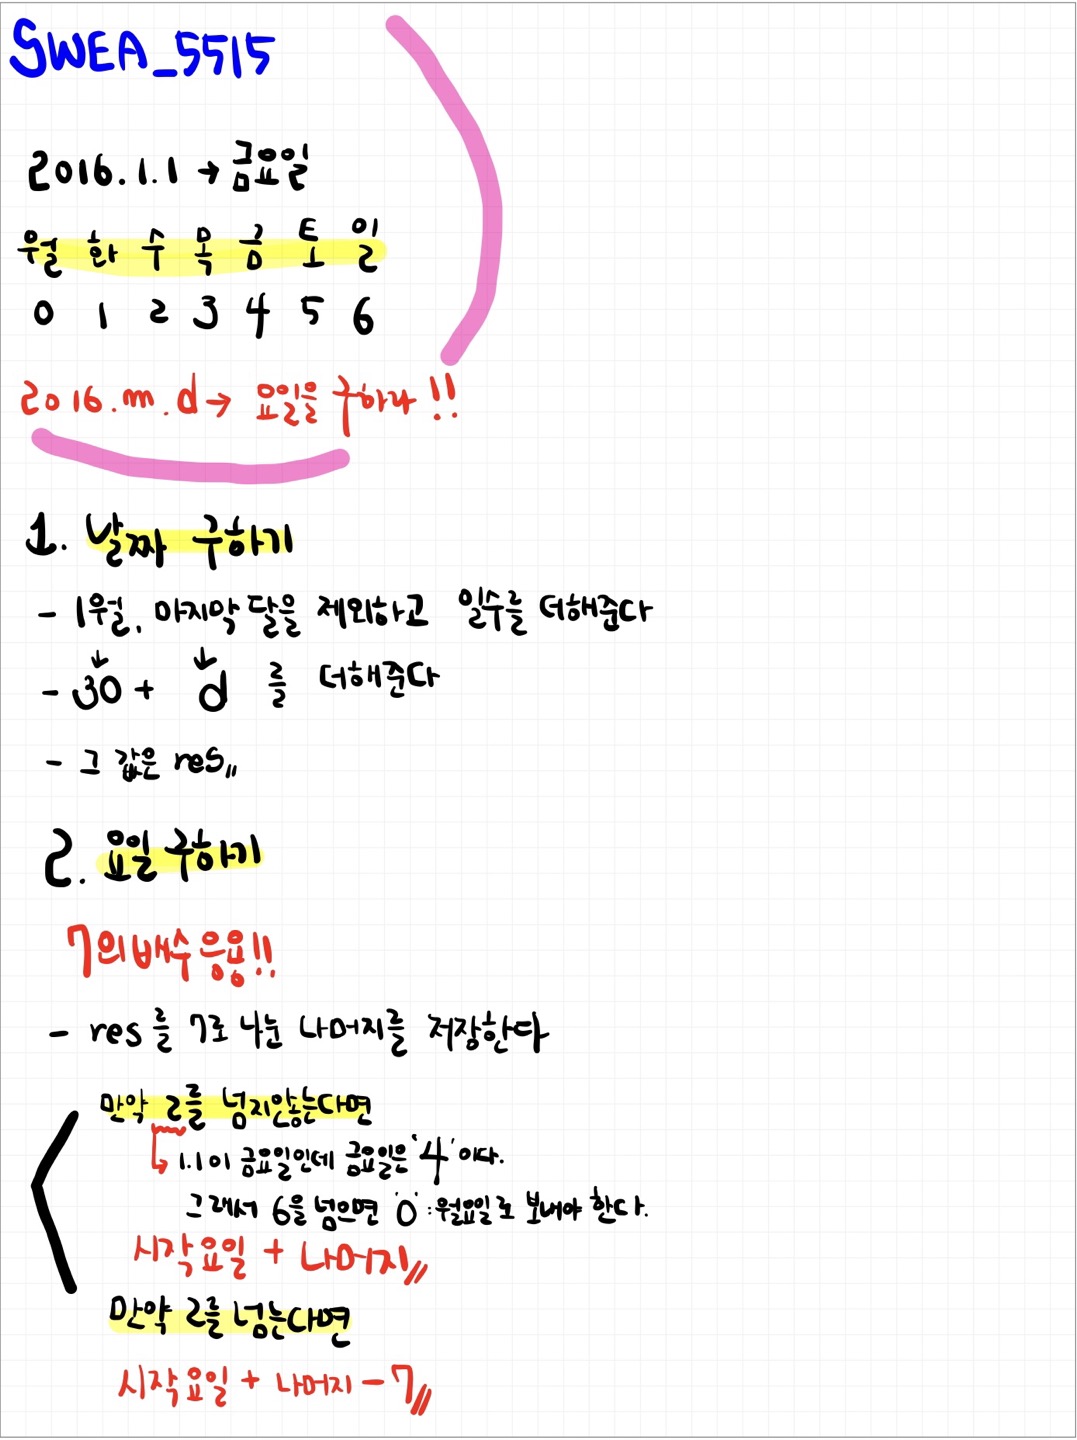 SWEA_5515
2016.1.1 → 금요일
월 화 수 목 금 토 일
0 1 2 3 4 5 6
2016.m.d → 요일을 구하라!!
1. 날짜 구하기
- 1월, 마지막 달을 제외하고 일수를 더해준다
↓ ↓
- 30 + d 를 더해준다
- 그 값은 res,,
2. 요일 구하기
7의 배수 응용!!
- res를 7로 나눈 나머지를 저장한다
만약 2를 넘지않는다면
↳ 1.1이 금요일인데 금요일은 '4'이다.
그래서 6을 넘으면 '0': 월요일로 보내야 한다.
시작요일 + 나머지//
만약 2를 넘는다면
시작요일 + 나머지 - 7//